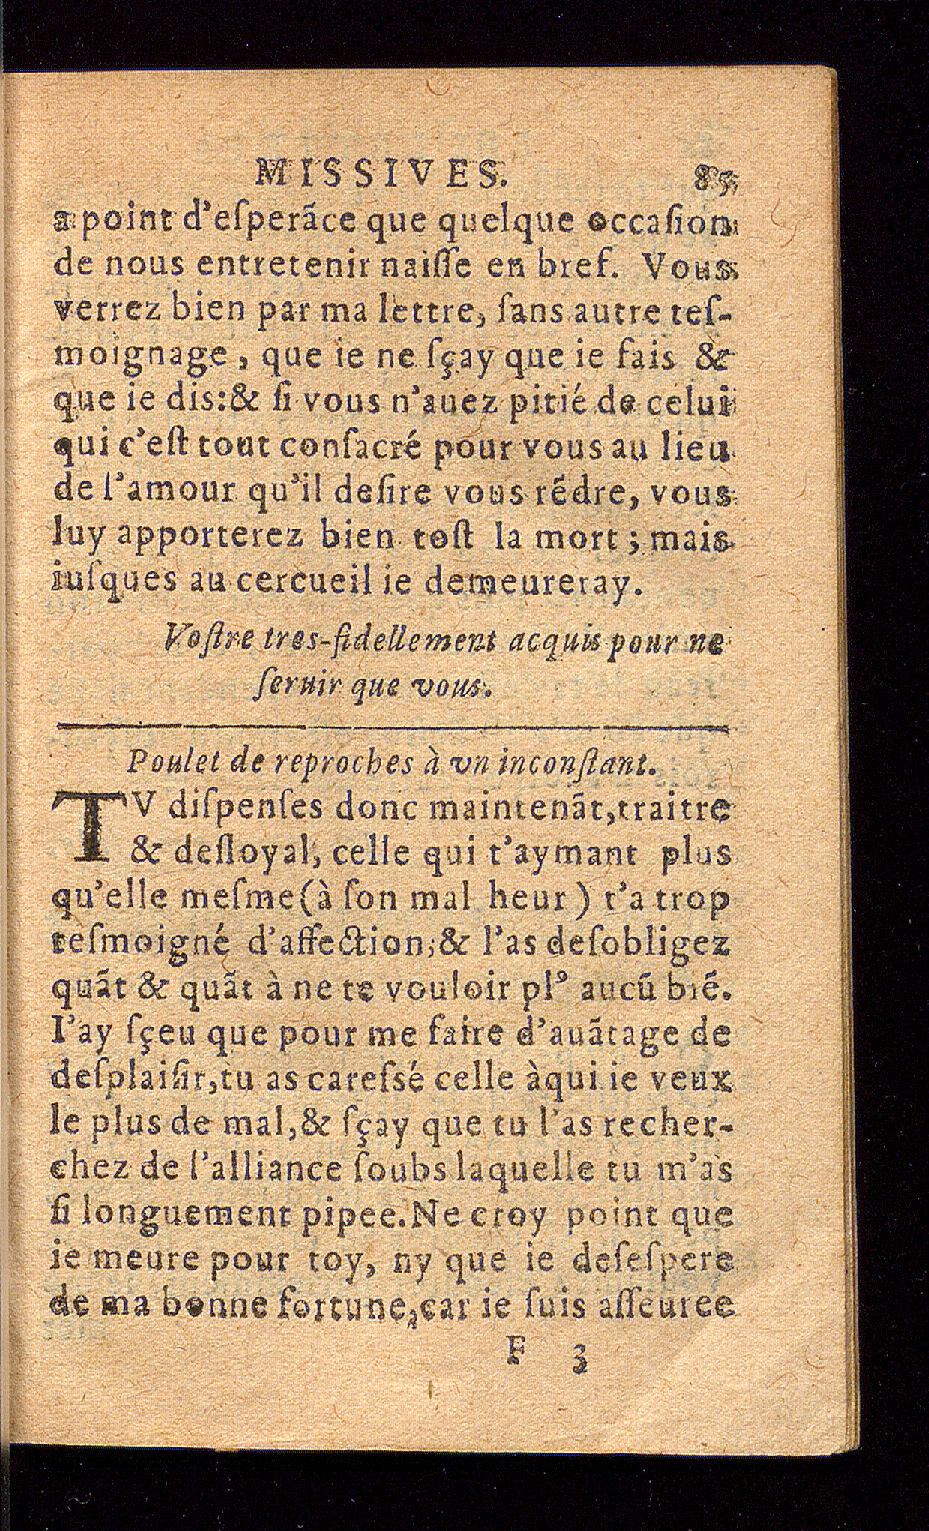 MISSIVES. 85
a point d'eſperãce que quelque occaſion
de nous entretenir naiſſe en bref. Vous
verrez bien par ma lettre, ſans autre teſ-
moignage, que ie ne ſçay que ie fais &
que ie dis:& ſi vous n'auez pitié de celui
qui c'eſt tout conſacré pour vous au lieu
de l'amour qu'il deſire vous rẽdre, vous
luy apporterez bien toſt la mort; mais
iuſques au cercueil ie demeureray.
Voſtre tres-fidellement acquis pour ne
ſeruir que vous.
Poulet de reproches à vn inconſtant.
TV diſpenſes donc maintenãt, traitre
& deſloyal, celle qui t'aymant plus
qu'elle meſme (à ſon mal heur) t'a trop
teſmoigné d'affection;& l'as deſobligez
quãt & quãt à ne te vouloir pl⁹ aucũ biẽ.
I'ay ſçeu que pour me faire d'auãtage de
deſplaiſir, tu as careſsé celle àqui ie veux
le plus de mal,& ſçay que tu l'as recher-
chez de l'alliance ſoubs laquelle tu m'as
ſi longuement pipee. Ne croy point que
ie meure pour toy, ny que ie deſeſpere
de ma bonne fortune, car ie ſuis aſſeuree
F 3